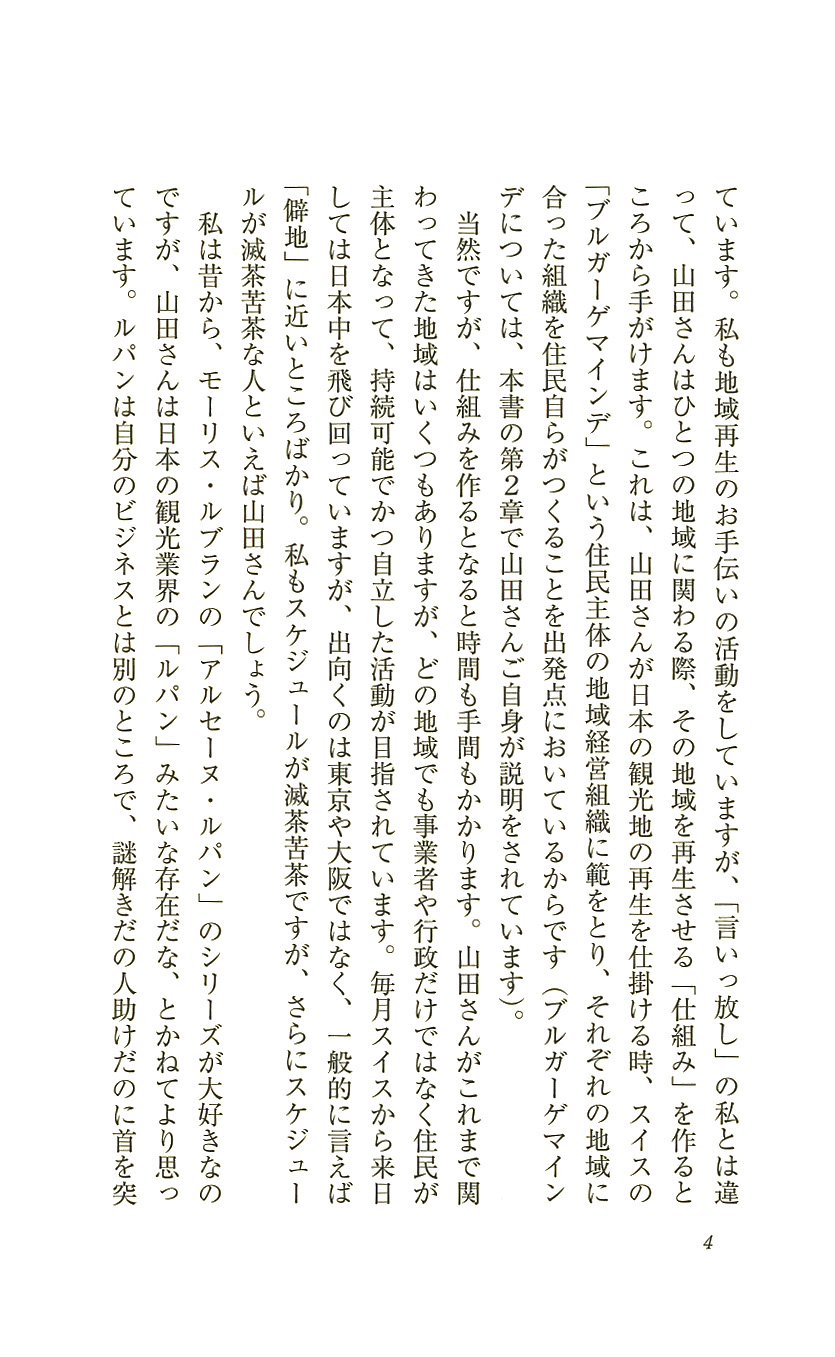 ています。私も地域再生のお手伝いの活動をしていますが、「言いっ放し」の私とは違
って、山田さんはひとつの地域に関わる際、その地域を再生させる「仕組み」を作ると
ころから手がけます。これは、山田さんが日本の観光地の再生を仕掛ける時、スイスの
「ブルガーゲマインデ」という住民主体の地域経営組織に範をとり、それぞれの地域に
合った組織を住民自らがつくることを出発点においているからです（ブルガーゲマイン
デについては、本書の第2章で山田さんご自身が説明をされています）。
　当然ですが、仕組みを作るとなると時間も手間もかかります。山田さんがこれまで関
わってきた地域はいくつもありますが、どの地域でも事業者や行政だけではなく住民が
主体となって、持続可能でかつ自立した活動が目指されています。毎月スイスから来日
しては日本中を飛び回っていますが、出向くのは東京や大阪ではなく、一般的に言えば
「僻地」に近いところばかり。私もスケジュールが滅茶苦茶ですが、さらにスケジュー
ルが滅茶苦茶な人といえば山田さんでしょう。
　私は昔から、モーリス・ルブランの「アルセーヌ・ルパン」のシリーズが大好きなの
ですが、山田さんは日本の観光業界の「ルパン」みたいな存在だな、とかねてより思っ
ています。ルパンは自分のビジネスとは別のところで、謎解きだの人助けだのに首を突
4